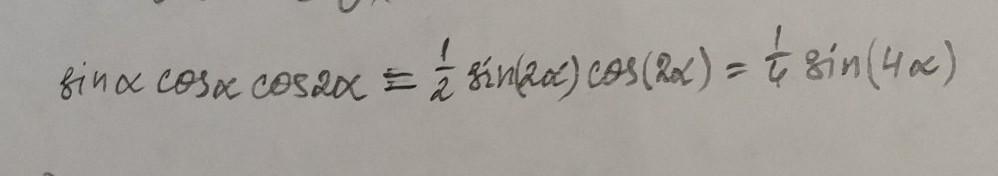 sinα cosα cos2α = 1/2 sin(2α) cos(2α) = 1/4 sin(4α)